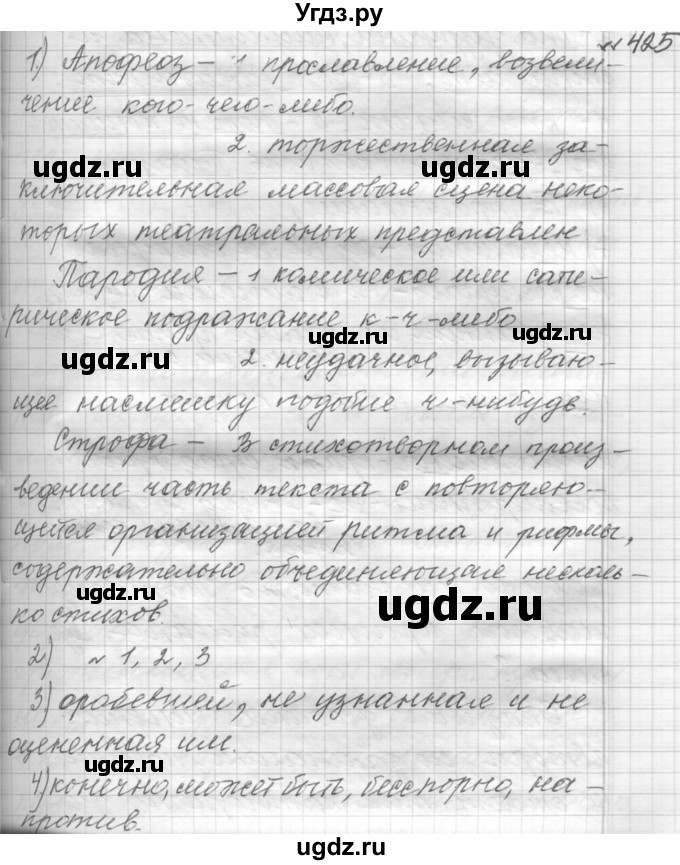 Угдз.ру
№425
1) Апофеоз – 1 прославление, возвели-
чение кого-чего-либо.
2. торжественная за-
ugdz.ru ugdz.ru
ключительная массовая сцена неко-
торых театральных представлен
Пародия – 1 комическое или сати-
рическое подражание к-ч-либо
ugdz.ru ugdz.ru
2. неудачное, вызываю-
ugdz.ru
щее насмешку подобие ч-нибудь.
Строфа – В стихотворном произ-
ведении часть текста с повторяю-
щейся организацией ритма и рифмы,
содержательно объединяющая несколь-
ugdz.ru ugdz.ru
ко стихов.
2) № 1, 2, 3
3) оробевшей, не узнанная и не
оцененная им.
ugdz.ru
4) конечно, может быть, бесспорно, на-
против.
ugdz.ru ugdz.ru